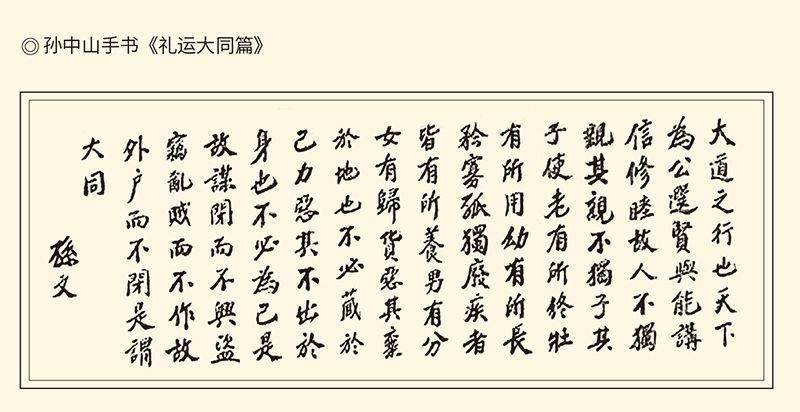 ◎ 孙中山手书《礼运大同篇》
大道之行也天下
為公選賢與能講
信修睦故人不獨
親其親不獨子其
子使老有所終壯
有所用幼有所長
矜寡孤獨廢疾者
皆有所養男有分
女有歸貨惡其棄
於地也不必藏於
己力惡其不出於
身也不必為己是
故謀閉而不興盜
竊亂賊而不作故
外户而不閉是謂
大同
孫文